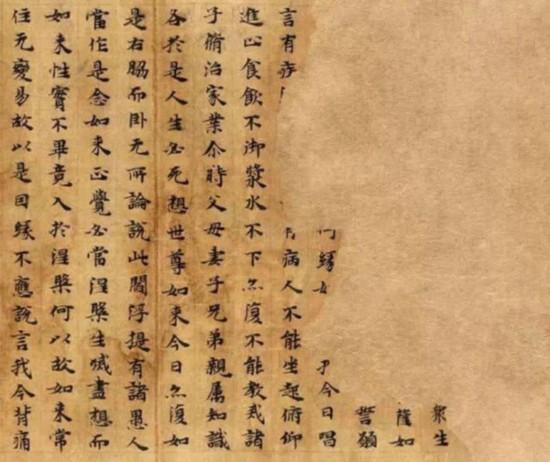 衆生
薩如
誓願
縁 今日唱
言有 病人不能坐起俯仰
進止食飲不御漿水不下亦復不能教戒諸
子脩治家業尒時父母妻子兄弟親属知識
各於是人生必死想世尊如来今日亦復如
是右脇而卧无所論說此閻浮提有諸愚人
當作是念如来正覺必當涅槃生滅盡想而
如来性實不畢竟入於涅槃何以故如来常
住无變易故以是因縁不應說言我今背痛